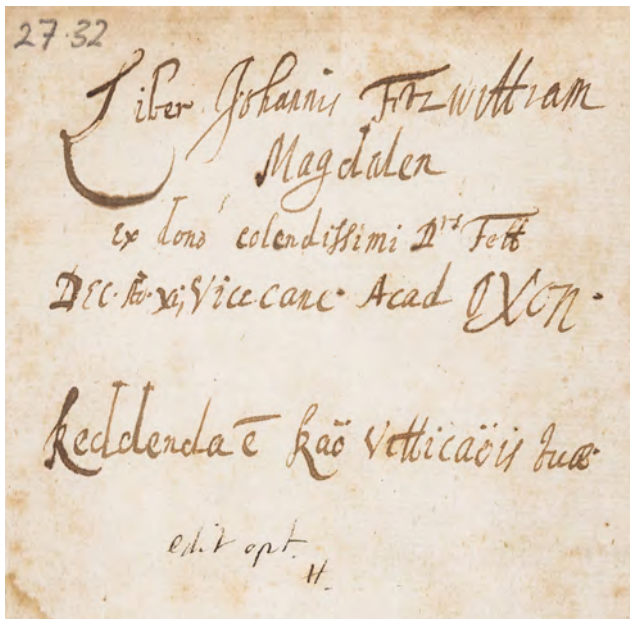 27·32
Liber Johannis Fitzwilliam
Magdalen
Ex dono colendissimi Dris Fell
Dec. Æd. Xi, Vicecanc. Acad OXon.
Reddenda ē Raö Villicaöis tuæ
edit opt.
H.